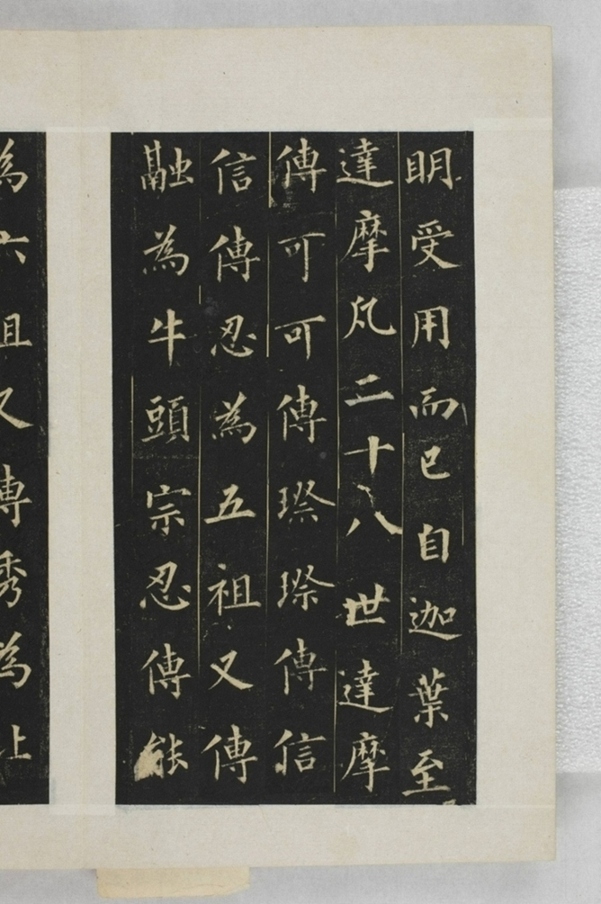 眀受用而已自迦葉至
達摩凡二十八世達摩
傳可可傳璨璨傳信
信傳忍為五祖又傳
融為牛頭宗忍傳能
為六祖又傳秀為北